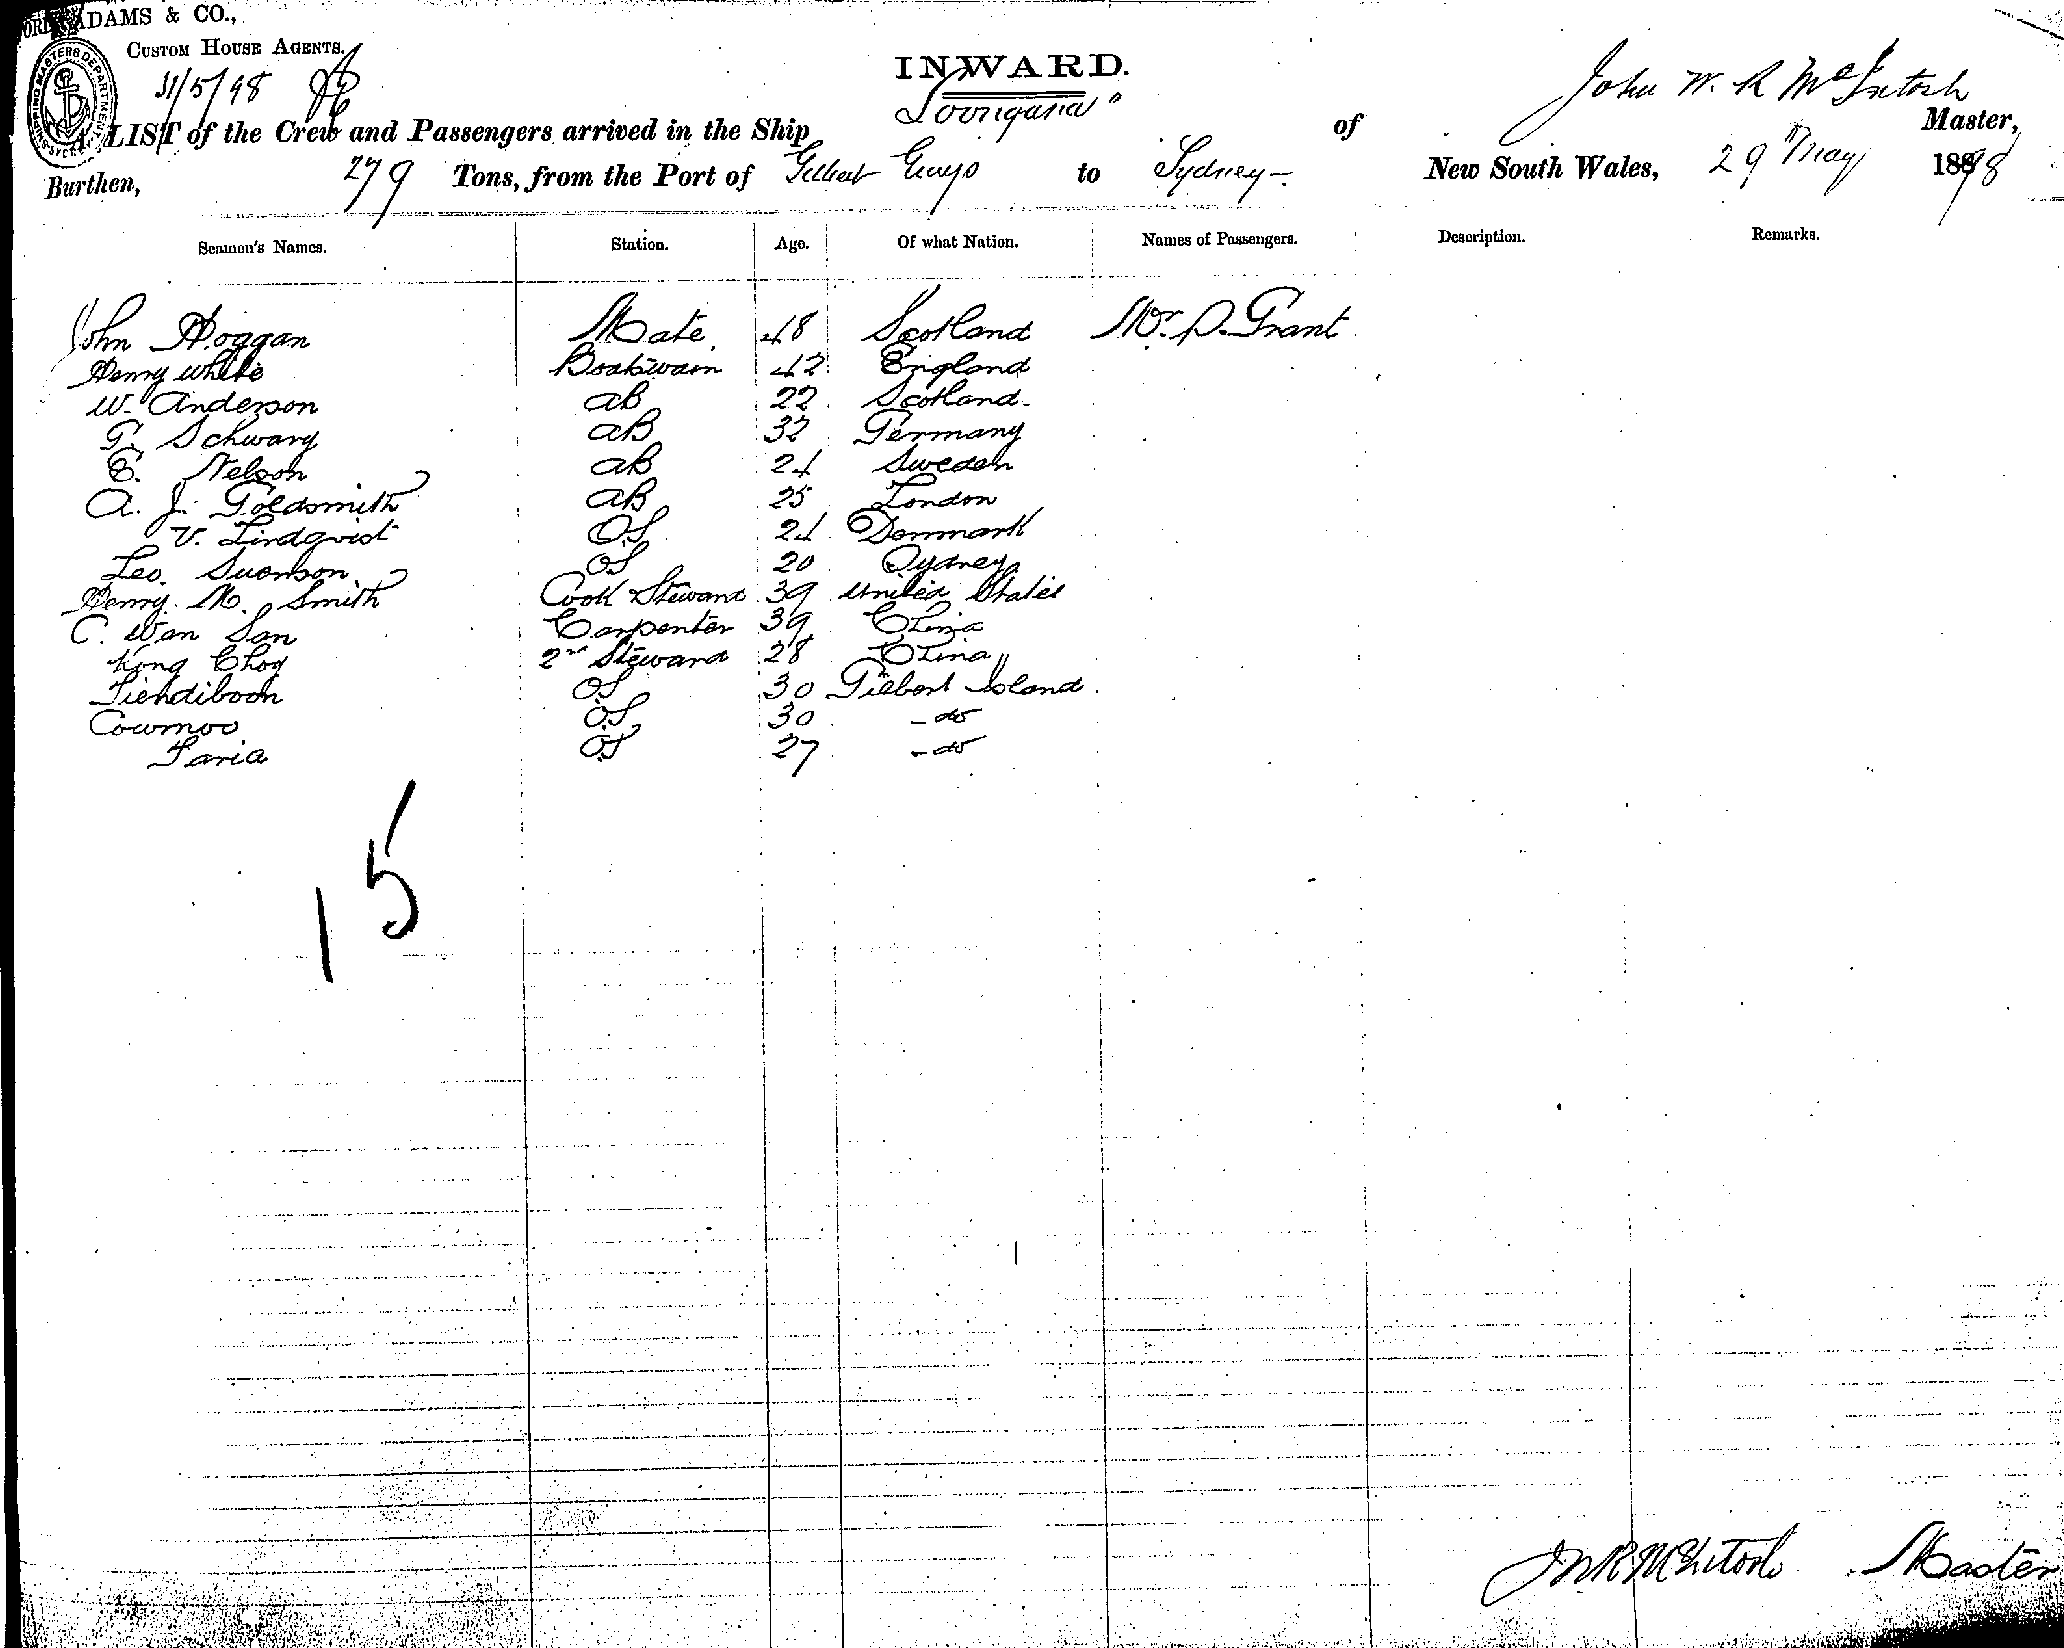 ADAMS & CO.,
CUSTOM HOUSE AGENTS.
SHIPPING MASTERS DEPARTMENT SYDNEY
31/5/98
INWARD.
A LIST of the Crew and Passengers arrived in the Ship "Loongana" of John W. R McIntosh Master,
Burthen, 279 Tons, from the Port of Gilbert Grup to Sydney - New South Wales, 29 May 1898
Seamen's Names. Station. Age. Of what Nation. Names of Passengers. Description. Remarks.
John Hoggan Mate 48 Scotland Mr. D. Grant
Henry White Boatswain 42 England
W. Anderson AB 22 Scotland
G. Schwarz AB 32 Germany
E. Nelson AB 24 Sweden
A. J. Goldsmith AB 25 London
V. Lindqvist OS 24 Denmark
Leo. Suenson OS 20 Sydney
Henry. M. Smith Cook Steward 39 United States
C. Wan San Carpenter 39 China
Kong Choy 2nd Steward 28 China
Tiendiboon OS 30 Gilbert Island
Cowmoo OS 30 - do
Taria OS 27 - do
15
J W R McIntosh Master